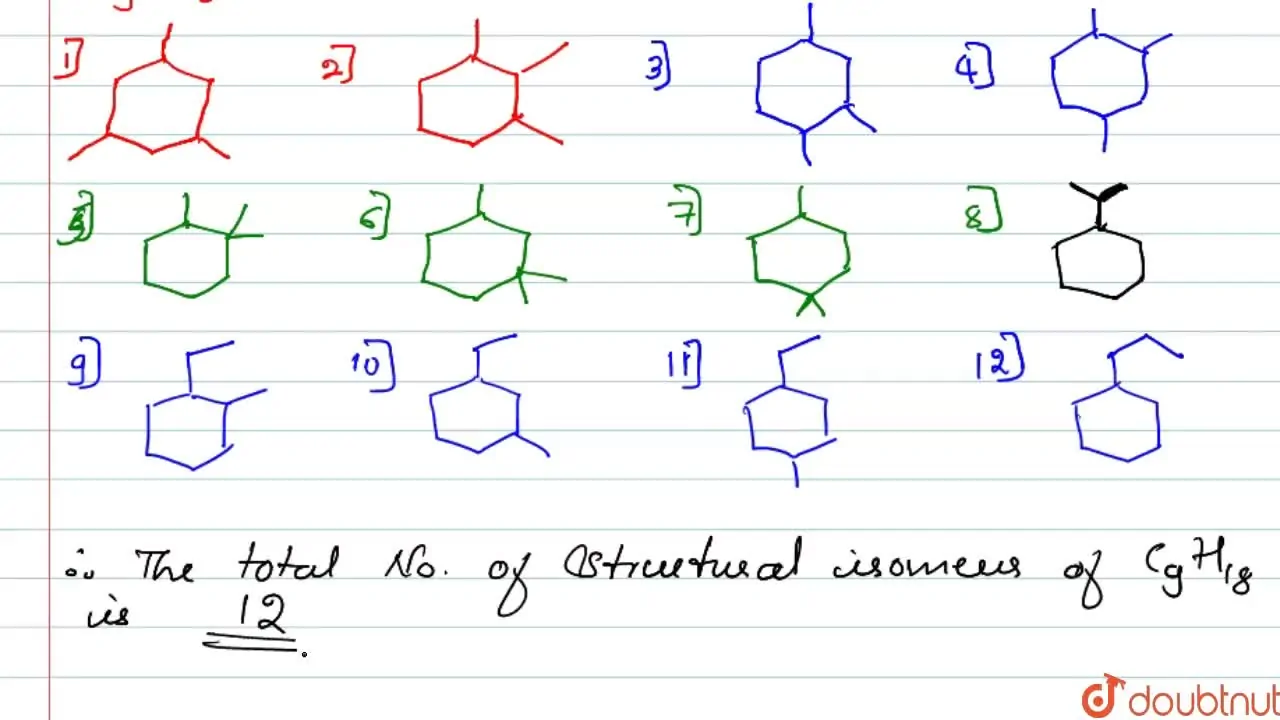 1] 2] 3] 4]
5] 6] 7] 8]
9] 10] 11] 12]
∴ The total No. of Structural isomers of C9H18
is 12.
doubtnut